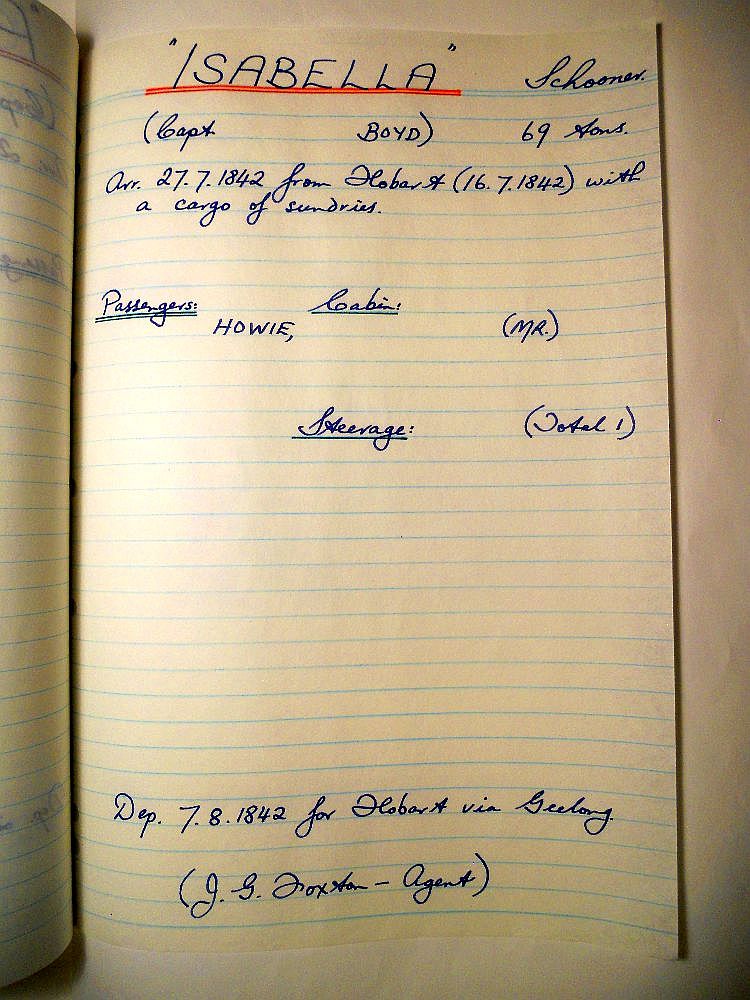 "ISABELLA" Schooner.
(Capt BOYD) 69 tons.
Arr. 27.7.1842 from Hobart (16.7.1842) with
a cargo of sundries.
Passengers: Cabin:
HOWIE, (MR.)
Steerage: (Total 1)
Dep. 7.8.1842 for Hobart via Geelong.
(J. G. Foxton - Agent)